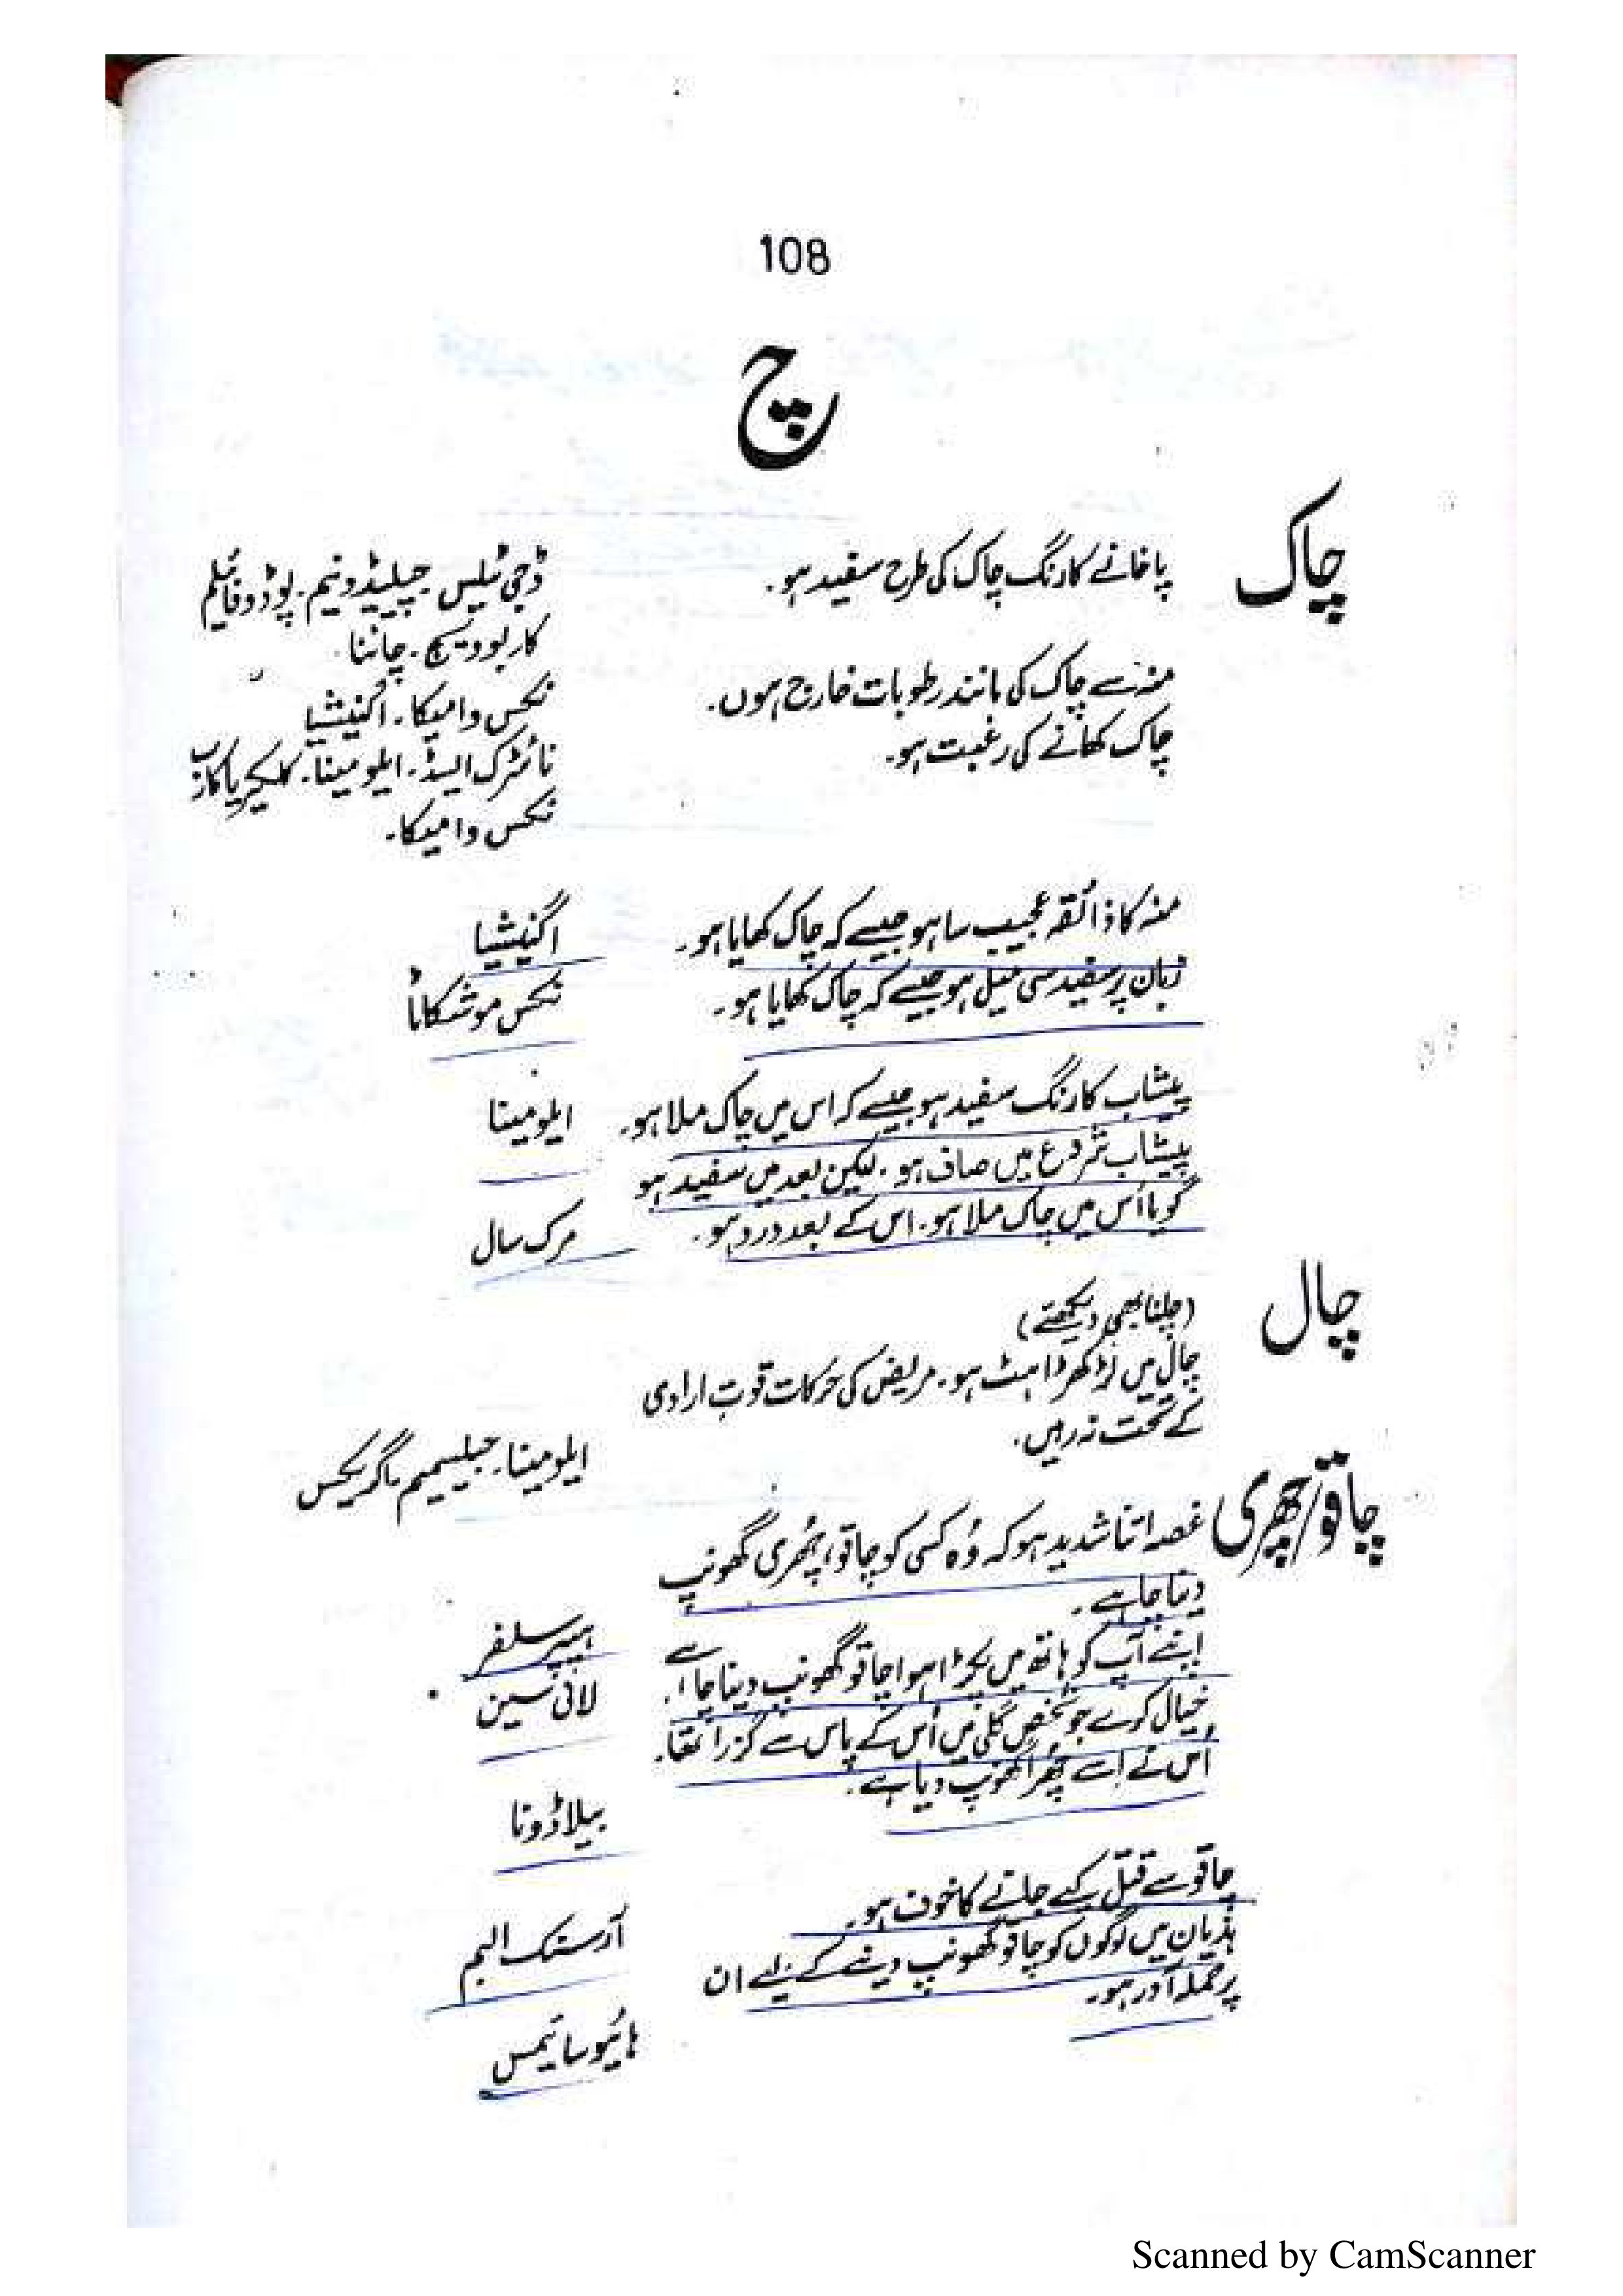 108
چ
چاک
پاخانے کا رنگ چاک کی طرح سفید ہو۔
ڈجی ٹیلس ۔ چیلیڈونیم ۔ پوڈوفائیلم
کاربوویج ۔ چائنا ۔
منہ سے چاک کی مانند رطوبات خارج ہوں۔
نکس وامیکا ۔ اگنیشیا
چاک کھانے کی رغبت ہو۔
نائٹرک ایسڈ ۔ ایلومینا ۔ کلیکیریا کارب
نکس وامیکا ۔
منہ کا ذائقہ عجیب سا ہو جیسے کہ چاک کھایا ہو۔
اگنیشیا
زبان پر سفید سی میل ہو جیسے کہ چاک کھایا ہو۔
نکس موشکاٹا
پیشاب کا رنگ سفید ہو جیسے کہ اس میں چاک ملا ہو۔
ایلومینا
پیشاب شروع میں صاف ہو ۔ لیکن بعد میں سفید ہو
گویا اُس میں چاک ملا ہو ۔ اس کے بعد درد ہو ۔
مرک سال
چال
(چلنا بھی دیکھئے)
چال میں لڑکھڑاہٹ ہو ۔ مریض کی حرکات قوتِ ارادی
کے تحت نہ رہیں ۔
ایلومینا ۔ جیلسیمیم ۔ اگریکس
چاقو/چھری
غصہ اتنا شدید ہو کہ وُہ کسی کو چاقو، چھُری گھونپ
دینا چاہے ۔
ہیپر سلفر
اپنے آپ کو ہاتھ میں پکڑا ہوا چاقو گھونپ دینا چاہے
لائی سین
خیال کرے جو شخص گلی میں اُس کے پاس سے گزرا تھا۔
اُس نے اسے چھُرا گھونپ دیا ہے ۔
بیلاڈونا
چاقو سے قتل کیے جانے کا خوف ہو ۔
آرسنک البم
ہذیان میں لوگوں کو چاقو گھونپ دینے کے لیے ان
پر حملہ آور ہو۔
ہائیوسائیمس
Scanned by CamScanner